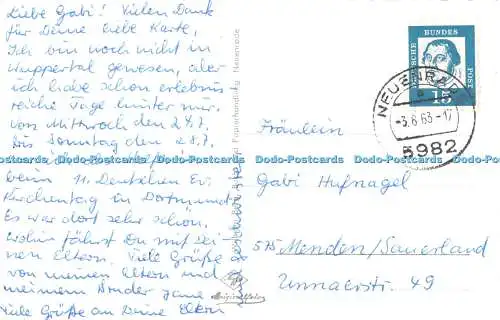 Liebe Gabi! Vielen Dank
für Deine liebe Karte,
Ich bin noch nicht in
Wuppertal gewesen, aber
ich habe schon erlebnis
reiche Tage hinter mir.
Von Mittwoch den 24.7.
bis Sonntag den 28.7.
beim 11. Deutschen Ev.
Kirchentag in Dortmund
Es war dort sehr schön.
Wohin fährst Du mit Dei-
nen Eltern. Viele Grüße
von meinen Eltern und
meinem Bruder
Viele Grüße an Deine Eltern
DEUTSCHE BUNDESPOST
15
NEUENRADE
-3.8.63-17
5982
Fräulein
Gabi Hufnagel
575 Menden/Sauerland
Unnaerstr. 49
Dodo-Postcards Dodo-Postcards Dodo-Postcards Dodo-Postcards Dodo-Postcards